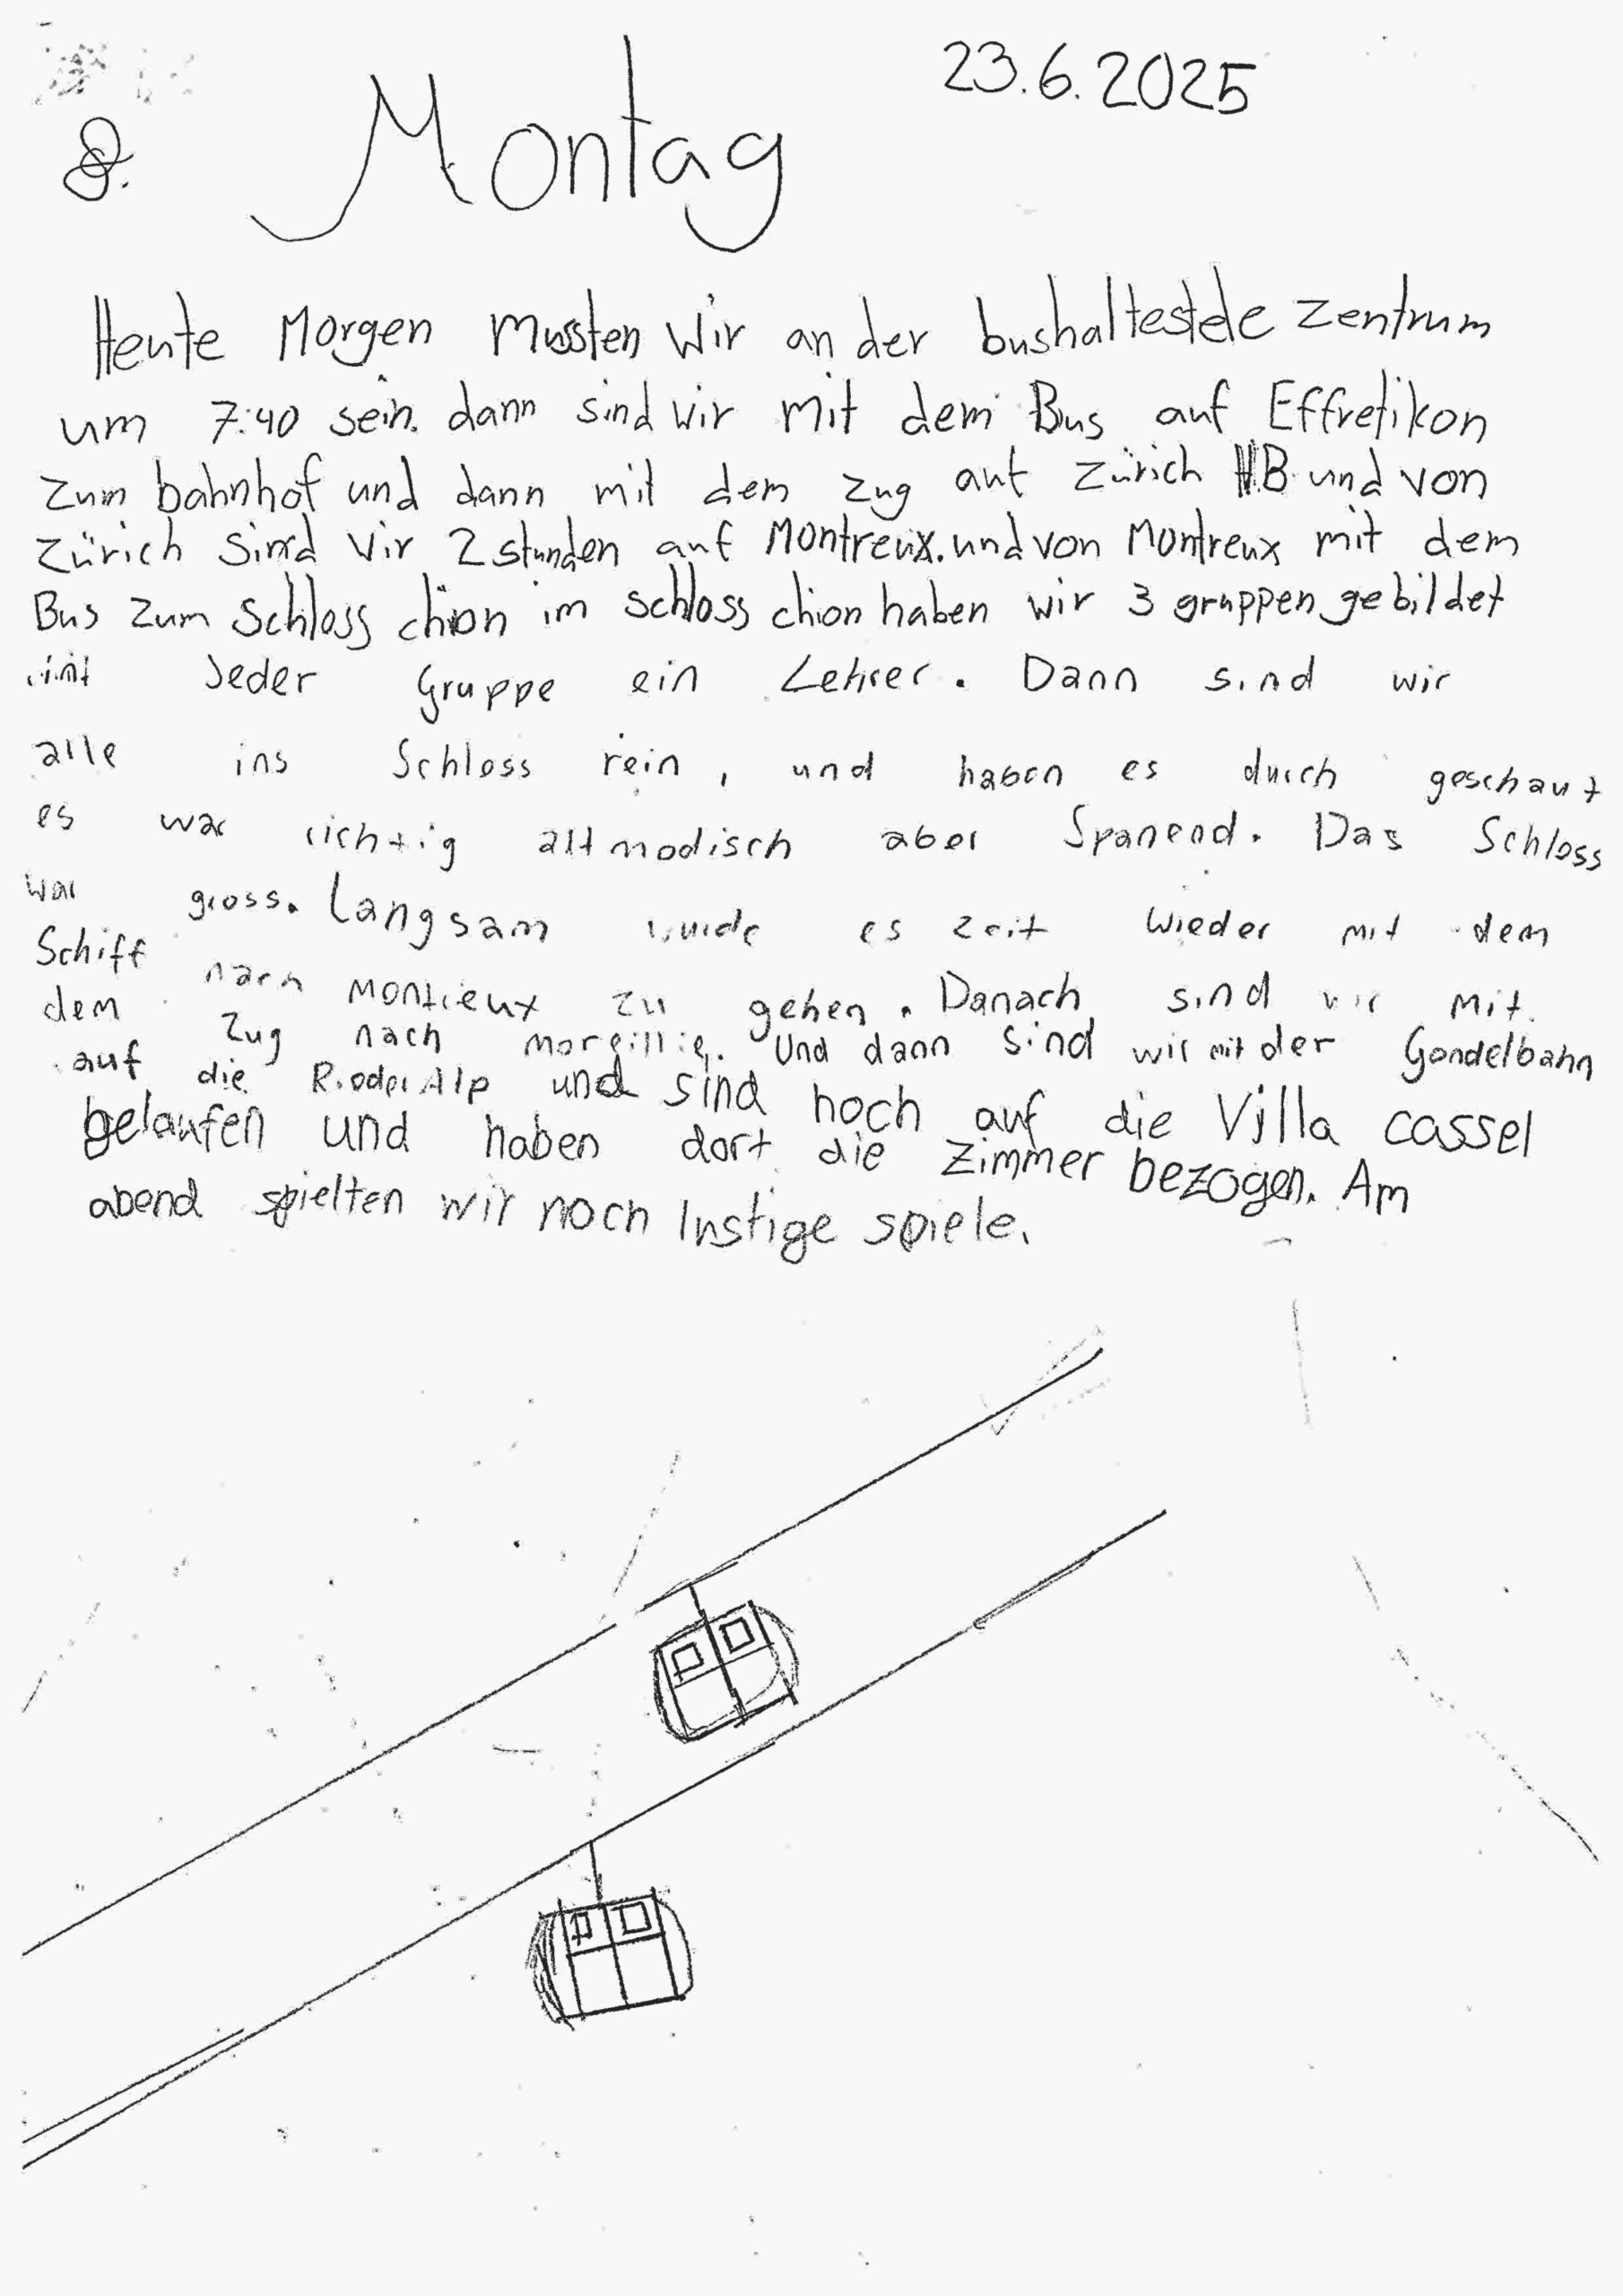 23.6.2025
8. Montag
Heute Morgen mussten wir an der bushaltestele zentrum
um 7:40 sein. dann sind wir mit dem Bus auf Effretikon
zum bahnhof und dann mit dem zug auf Zürich HB und von
Zürich sind wir 2 stunden auf Montreux. und von Montreux mit dem
Bus zum Schloss chion im schloss chion haben wir 3 gruppen gebildet
mit Jeder Gruppe ein Lehrer. Dann sind wir
alle ins Schloss rein, und haben es durch geschaut
es war richtig altmodisch aber Spanend. Das Schloss
war gross. Langsam wurde es zeit wieder mit dem
Schiff nach Montreux zu gehen. Danach sind wir mit
dem Zug nach . Und dann sind wir mit der Gondelbahn
auf die RioderAlp und sind noch auf die Villa cassel
gelaufen und haben dort die Zimmer bezogen. Am
abend spielten wir noch lustige spiele.